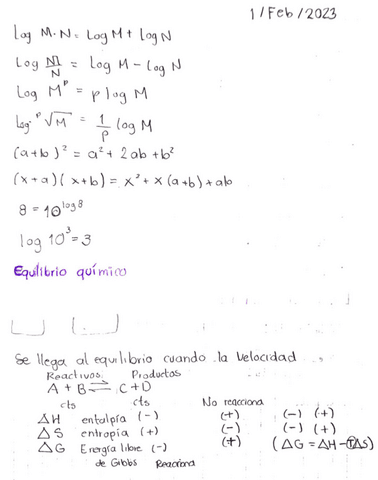 1/Feb/2023
log M·N = Log M + log N
Log M/N = Log M - log N
Log M^p = p log M
Log ^p√M = 1/p log M
(a+b)² = a² + 2ab + b²
(x+a)(x+b) = x² + x(a+b) + ab
8 = 10^log 8
log 10³ = 3
Equilibrio químico
Se llega al equilibrio cuando la velocidad
Reactivos Productos
A + B ⇌ C + D
cts cts No reacciona
ΔH entalpía (-) (+) (-) (+)
ΔS entropía (+) (-) (-) (+)
ΔG Energía libre (-) (+) (ΔG = ΔH - TΔS)
de Gibbs Reacciona